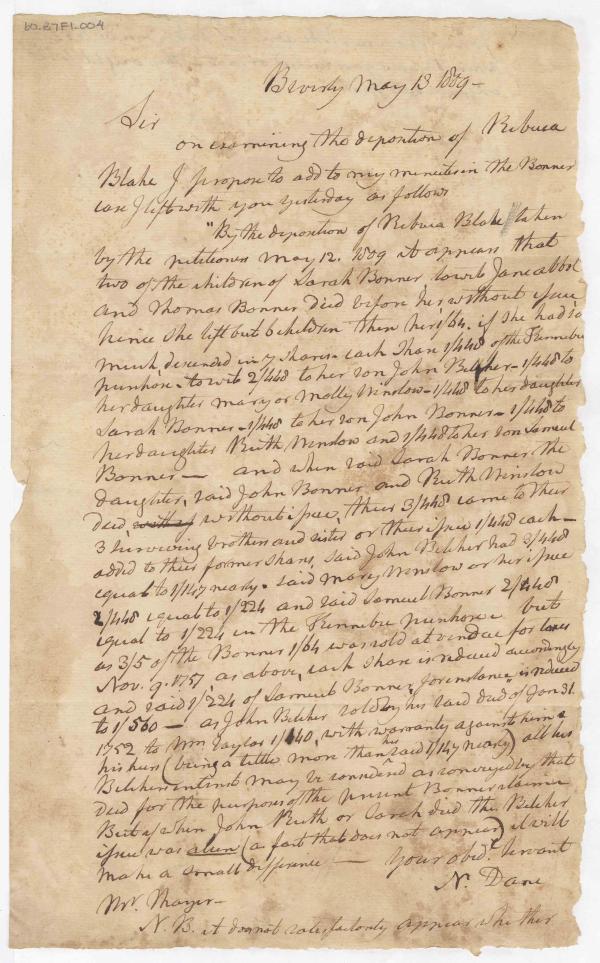 60.B7F1.004
Beverly May 13 1809 -
Sir
on examining the deposition of Rebecca
Blake I propose to add to my minutes in the Bonner
case I left with you yesterday as follows
"By the deposition of Rebecca Blake taken
by the petitioners May 12. 1809 it appears that
two of the children of Sarah Bonner to wit Jane abbot
and Thomas Bonner died before her, without issue,
hence she left but 6 children then her 1/64. if she had so
much, descended in 7 shares - each share 1/448 of the Kennebec
purchase - to wit 2/448 to her son John Belcher - 1/448 to
her daughter mary or molly Winslow - 1/448 to her daughter
Sarah Bonner - 1/448 to her son John Bonner - 1/448 to
her daughter Ruth Winslow and 1/448 to her son Samuel
Bonner - and when said Sarah Bonner the
daughter, said John Bonner and Ruth Winslow
died, without issue, their 3/448 came to their
3 surviving brothers and sister or their issue 1/448 each -
added to their former shares, said John Belcher had 3/448
equal to 1/147 nearly - said mary Winslow or her issue
2/448 equal to 1/224 and said Samuel Bonner 2/448
equal to 1/224 in the Kennebec purchase but
as 3/5 of the Bonner 1/64 was sold at vendue for taxes
Nov. 9. 1757, as above, each share is reduced accordingly
and said 1/224 of Samuel Bonner, for instance, is reduced
to 1/560 - as John Belcher sold by his said deed of Jan 31.
1752 to Wm Taylor 1/140, with warranty against him &
his heirs (being a little more than his said 1/147 nearly) all his
Belchers interest may be considered as conveyed by that
deed for the purposes of the present Bonner claim
But if when John Ruth or Sarah died the Belcher
issue was alien (a fact that does not appear) it will
make a small difference - Your obedt. servant
N. Dane
Mr. Thayer -
N. B. it does not satisfactorily appear whether